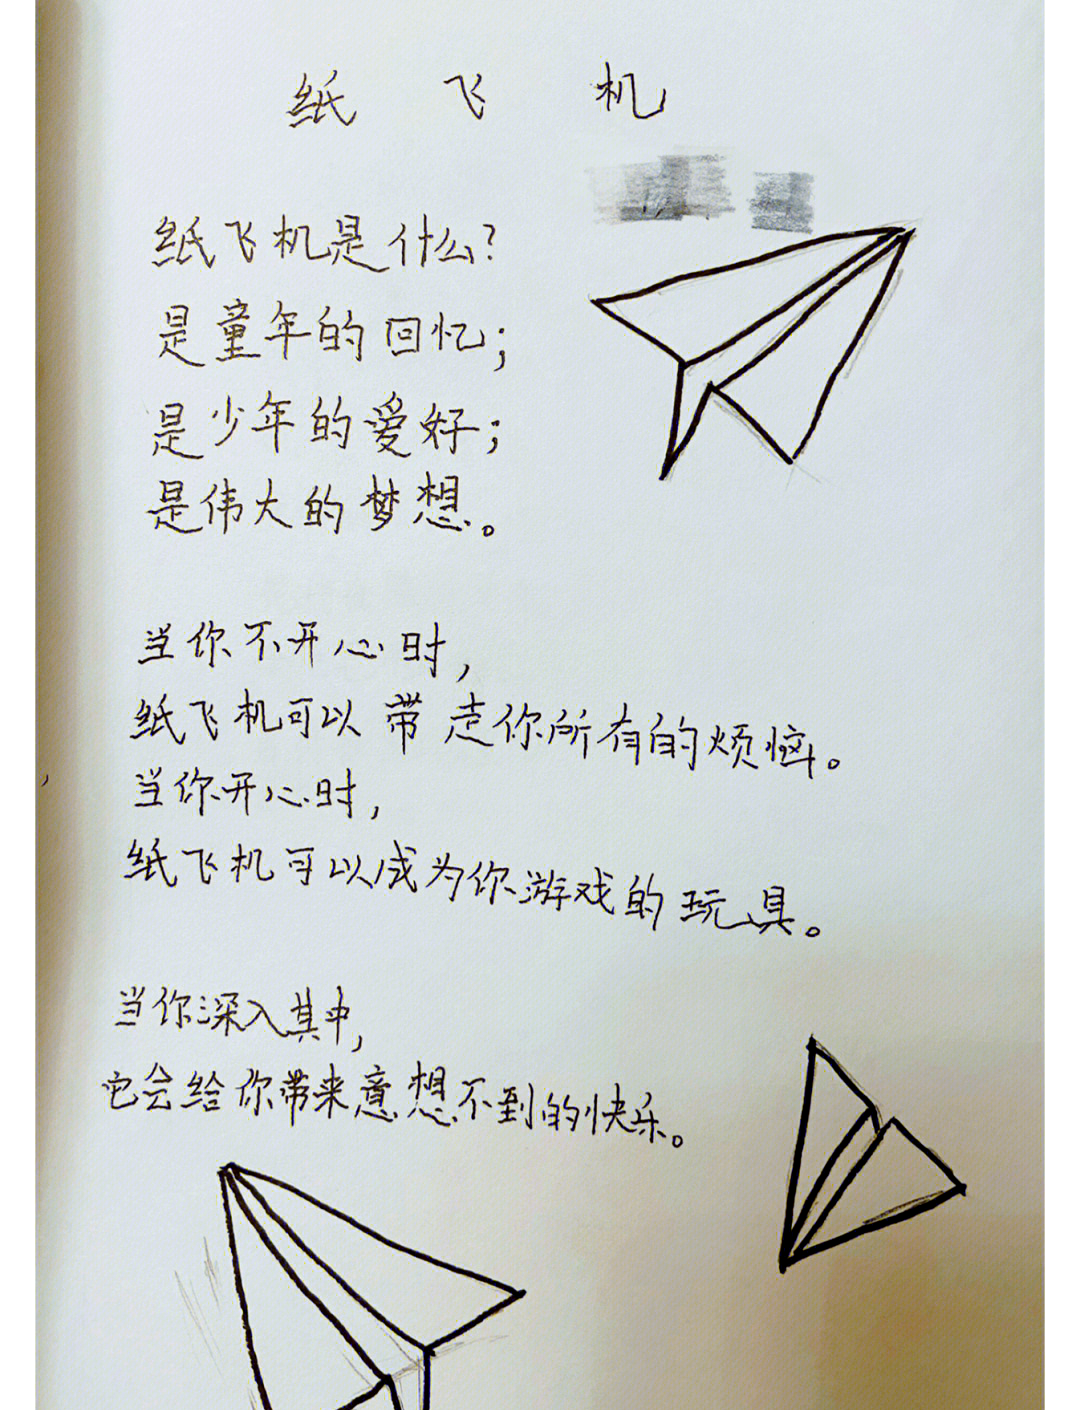 纸飞机
纸飞机是什么?
是童年的回忆;
是少年的爱好;
是伟大的梦想。
当你不开心时,
纸飞机可以带走你所有的烦恼。
当你开心时,
纸飞机可以成为你游戏的玩具。
当你深入其中,
它会给你带来意想不到的快乐。